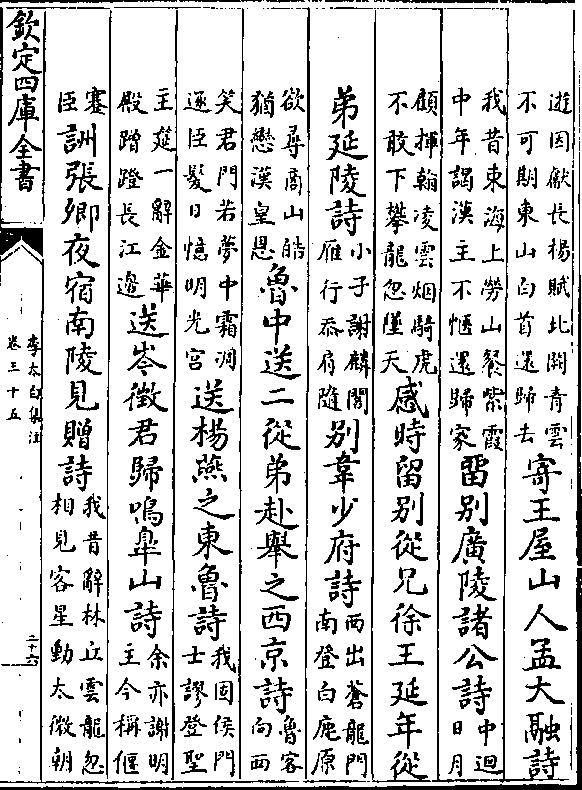 遊因獻長楊賦北闕青雲
不可期東山白首還歸去
寄王屋山人孟大融詩
我昔東海上勞山餐紫霞
中年謁漢主不愜還歸家
留別廣陵諸公詩
中迴
日月
顧揮翰凌雲烟騎虎
不敢下攀龍忽墜天
感時留別從兄徐王延年從
弟延陵詩
小子謝麟閣
雁行忝肩隨
別韋少府詩
西出蒼龍門
南登白鹿原
欲尋商山皓
猶戀漢皇恩
魯中送二從弟赴舉之西京詩
魯客
向西
笑君門若夢中霜凋
逐臣髮日憶明光宮
送楊燕之東魯詩
我固侯門
士謬登聖
主筵一辭金華
殿蹭蹬長江邊
送岑徵君歸鳴臯山詩
余亦謝明
主今稱偃
蹇
臣
詶張卿夜宿南陵見贈詩
我昔辭林丘雲龍忽
相見客星動太微朝
欽定四庫全書
李太白集注
卷三十五
二十六